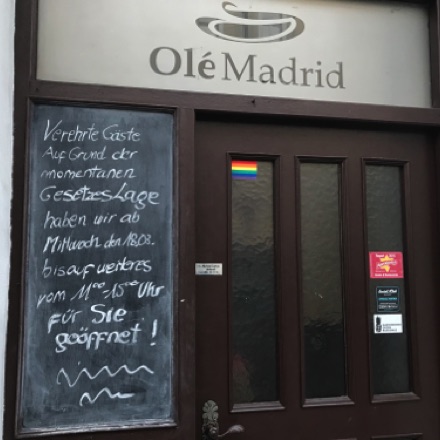 Olé Madrid
Verehrte Gäste
Auf Grund der
momentanen
GesetzesLage
haben wir ab
Mittwoch den 18.03.
bis auf weiteres
vom 11⁰⁰-15⁰⁰ Uhr
für Sie
geöffnet!